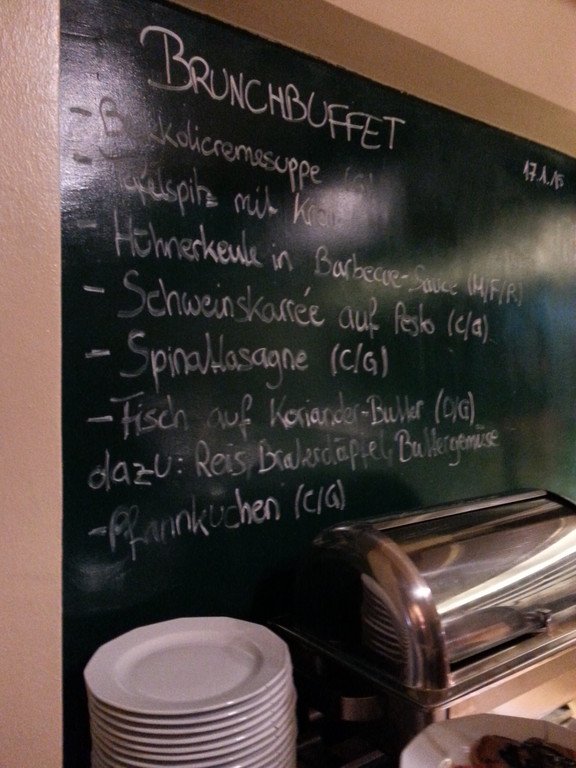 BRUNCHBUFFET
17.1.15
- Brokkolicremesuppe (G)
- Tafelspitz mit
- Hühnerkeule in Barbecue-Sauce (M/F/R)
- Schweinskarrée auf Pesto (C/G)
- Spinatlasagne (C/G)
- Fisch auf Koriander-Butter (D/G)
dazu: Reis, Braterdäpfel, Buttergemüse
- Pfannkuchen (C/G)